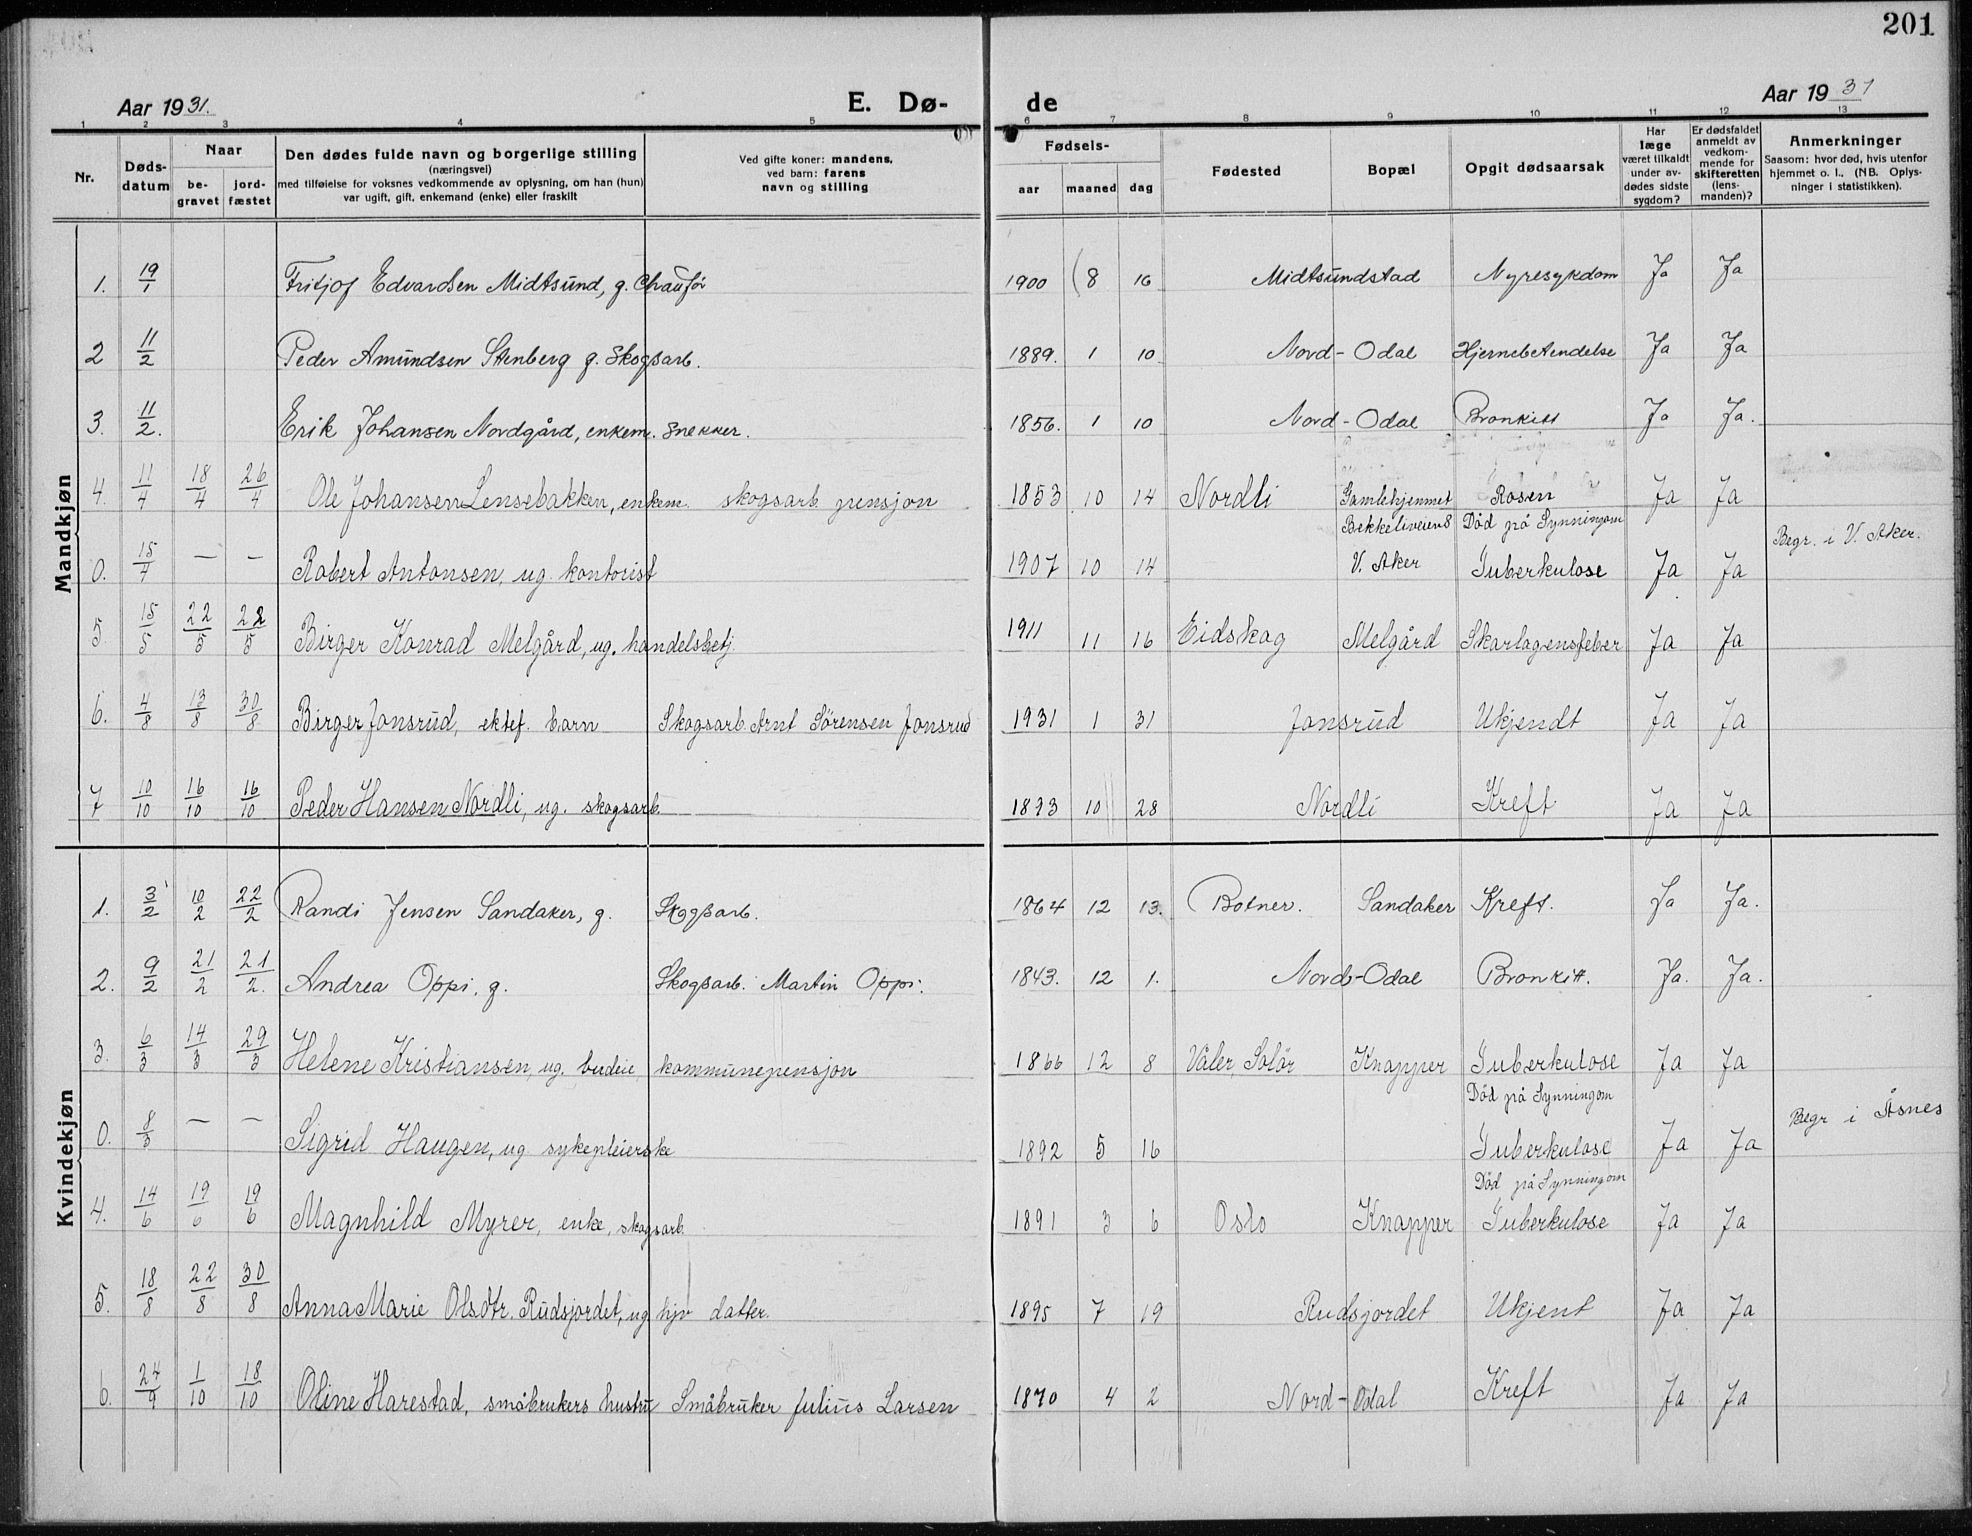 201
Aar 1931. E. Dø- de Aar 1931
1 2 3 4 5 6 7 8 9 10 11 12 13
Nr. Døds-datum Naar be-gravet jord-fæstet Den dødes fulde navn og borgerlige stilling (næringsvei) med tilføielse for voksnes vedkommende av oplysning, om han (hun) var ugift, gift, enkemand (enke) eller fraskilt Ved gifte koner: mandens, ved barn: farens navn og stilling Fødsels- aar maaned dag Fødested Bopæl Opgit dødsaarsak Har læge været tilkaldt under av-dødes sidste sygdom? Er dødsfaldet anmeldt av vedkom-mende for skifteretten (lens-manden)? Anmerkninger Saasom: hvor død, hvis utenfor hjemmet o. l., (NB. Oplys-ninger i statistikken).
Mandkjøn
1. 19/1 Fritjof Edvardsen Midtsund, g. Chaufør 1900 (8 16 Midtsundstad Nyresykdom Ja Ja
2 11/2 Peder Amundsen Stenberg g. Skogsarb. 1889. 1 10 Nord-Odal Hjernebetendelse Ja Ja
3. 11/2. Erik Johansen Nordgård, enkem. snekker. 1856. 1 10 Nord-Odal Bronkitt Ja Ja.
4. 11/4 18/4 26/4 Ole Johansen Lensebakken, enkem. skogsarb. pensjon 1853 10 14 Nordli Gamlehjemmet Rosen Ja Ja
Bekkeliveien 8 Död på Synningom Begr. i V. Aker.
0. 15/4 — — Robert Antonsen, ug. kontorist 1907 10 14 V. Aker Tuberkulose Ja Ja
5 15/5 22/5 22/5 Birger Konrad Melgård, ug. handelsbetj. 1911 11 16 Eidskog Melgård Skarlagensfeber Ja Ja
6. 4/8 13/8 30/8 Birger Jonsrud, ektef. barn Skogsarb. Arnt Sörensen Jonsrud 1931 1 31 Jonsrud Ukjendt Ja Ja
7 10/10 16/10 16/10 Peder Hansen Nordli, ug. skogsarb. 1893 10 28 Nordli Kreft Ja Ja
Kvindekjøn
1. 3/2 10/2 22/2 Randi Jensen Sandaker, g. Skogsarb. 1864 12 13. Botner. Sandaker Kreft. Ja Ja.
2. 9/2 21/2 21/2. Andrea Oppi. g. Skogsarb. Martin Oppi. 1843. 12 1. Nord-Odal Bronkitt. Ja. Ja.
3. 6/3 14/3 29/3 Helene Kristiansen, ug. budeie, kommunepensjon 1866 12 8 Våler, Solör Knapper Tuberkulose Ja Ja
Död på Synningom Begr i Åsnes
0. 8/3 — — Sigrid Haugen, ug sykepleierske 1892 5 16 Tuberkulose Ja Ja
Död på Synningom
4. 14/6 19/6 19/6 Magnhild Myrer, enke, skogsarb. 1891 3 6 Oslo Knapper Tuberkulose Ja Ja
5. 18/8 22/8 30/8 Anna Marie Olsdtr. Rudsjordet, ug hjv datter. 1895 7 19 Rudsjordet Ukjent Ja Ja
6. 24/9 1/10 18/10 Oline Harestad, småbrukers hustru Småbruker Julius Larsen 1870 4 2 Nord-Odal Kreft Ja Ja